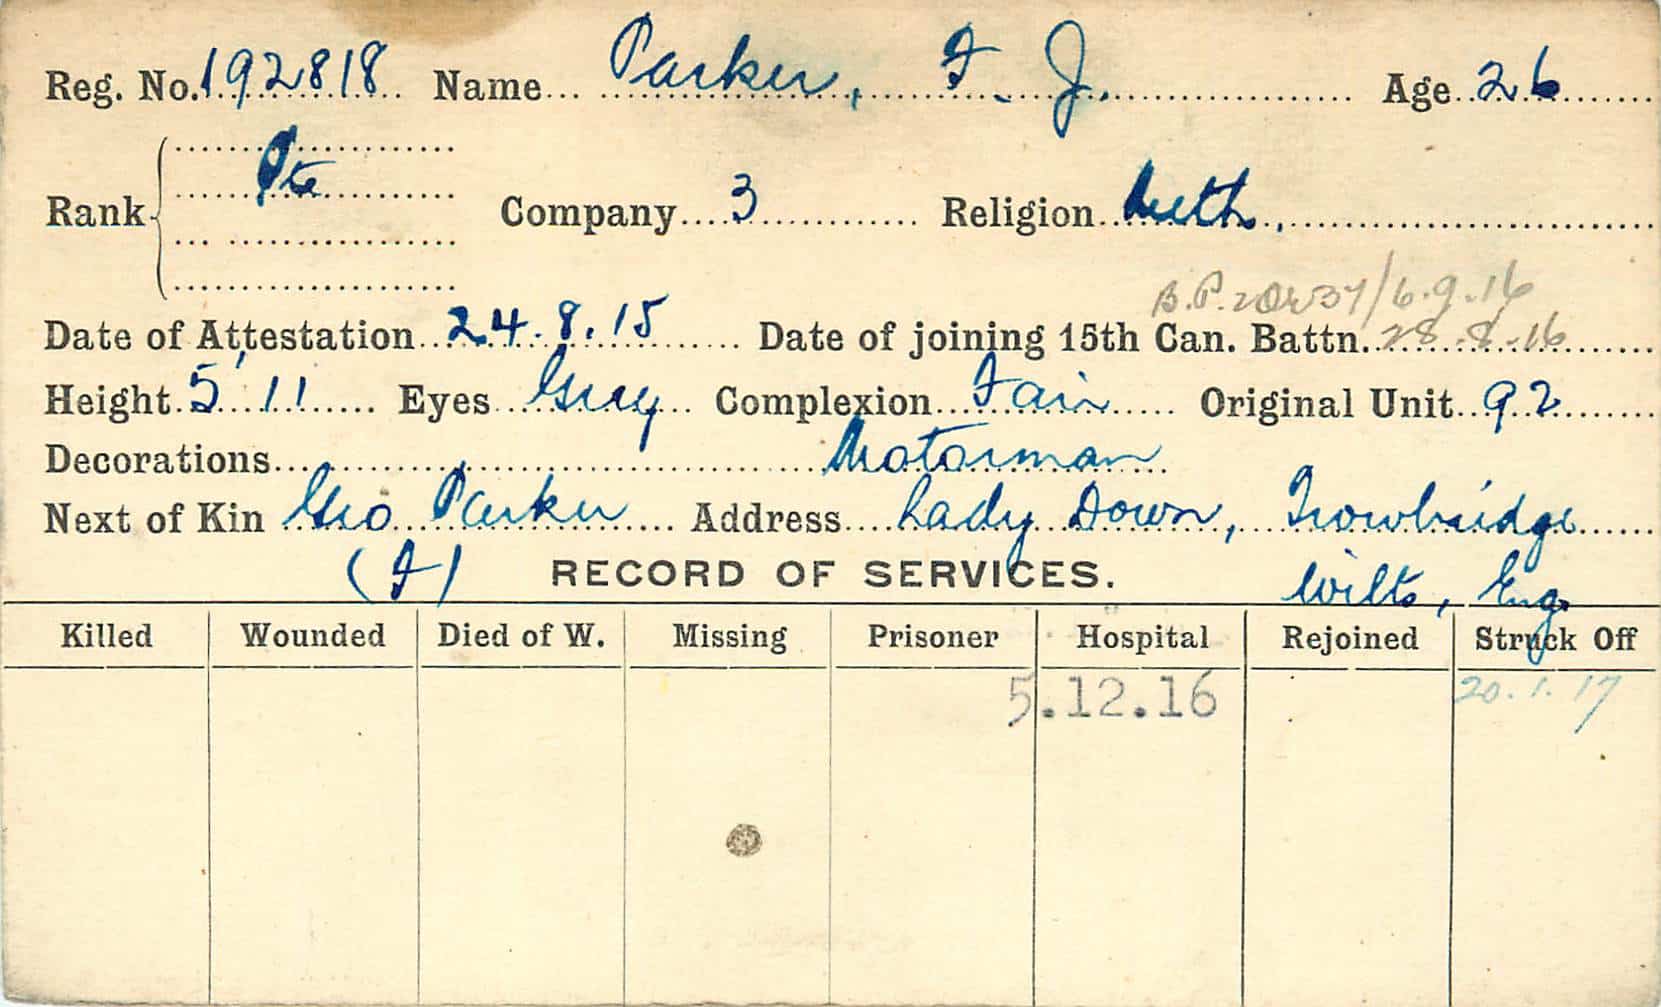 Reg. No. 192818 Name Parker, F. J. Age 26
Pte
Rank Company 3 Religion Meth.
B.P. 37/6.9.16
Date of Attestation 24.8.15 Date of joining 15th Can. Battn. 28.8.16
Height 5'11 Eyes Grey Complexion Fair Original Unit 92
Decorations Motorman
Next of Kin Geo Parker Address Lady Down, Trowbridge
(F) RECORD OF SERVICES. Wilts, Eng.
Killed Wounded Died of W. Missing Prisoner Hospital Rejoined Struck Off
5.12.16 20.1.17